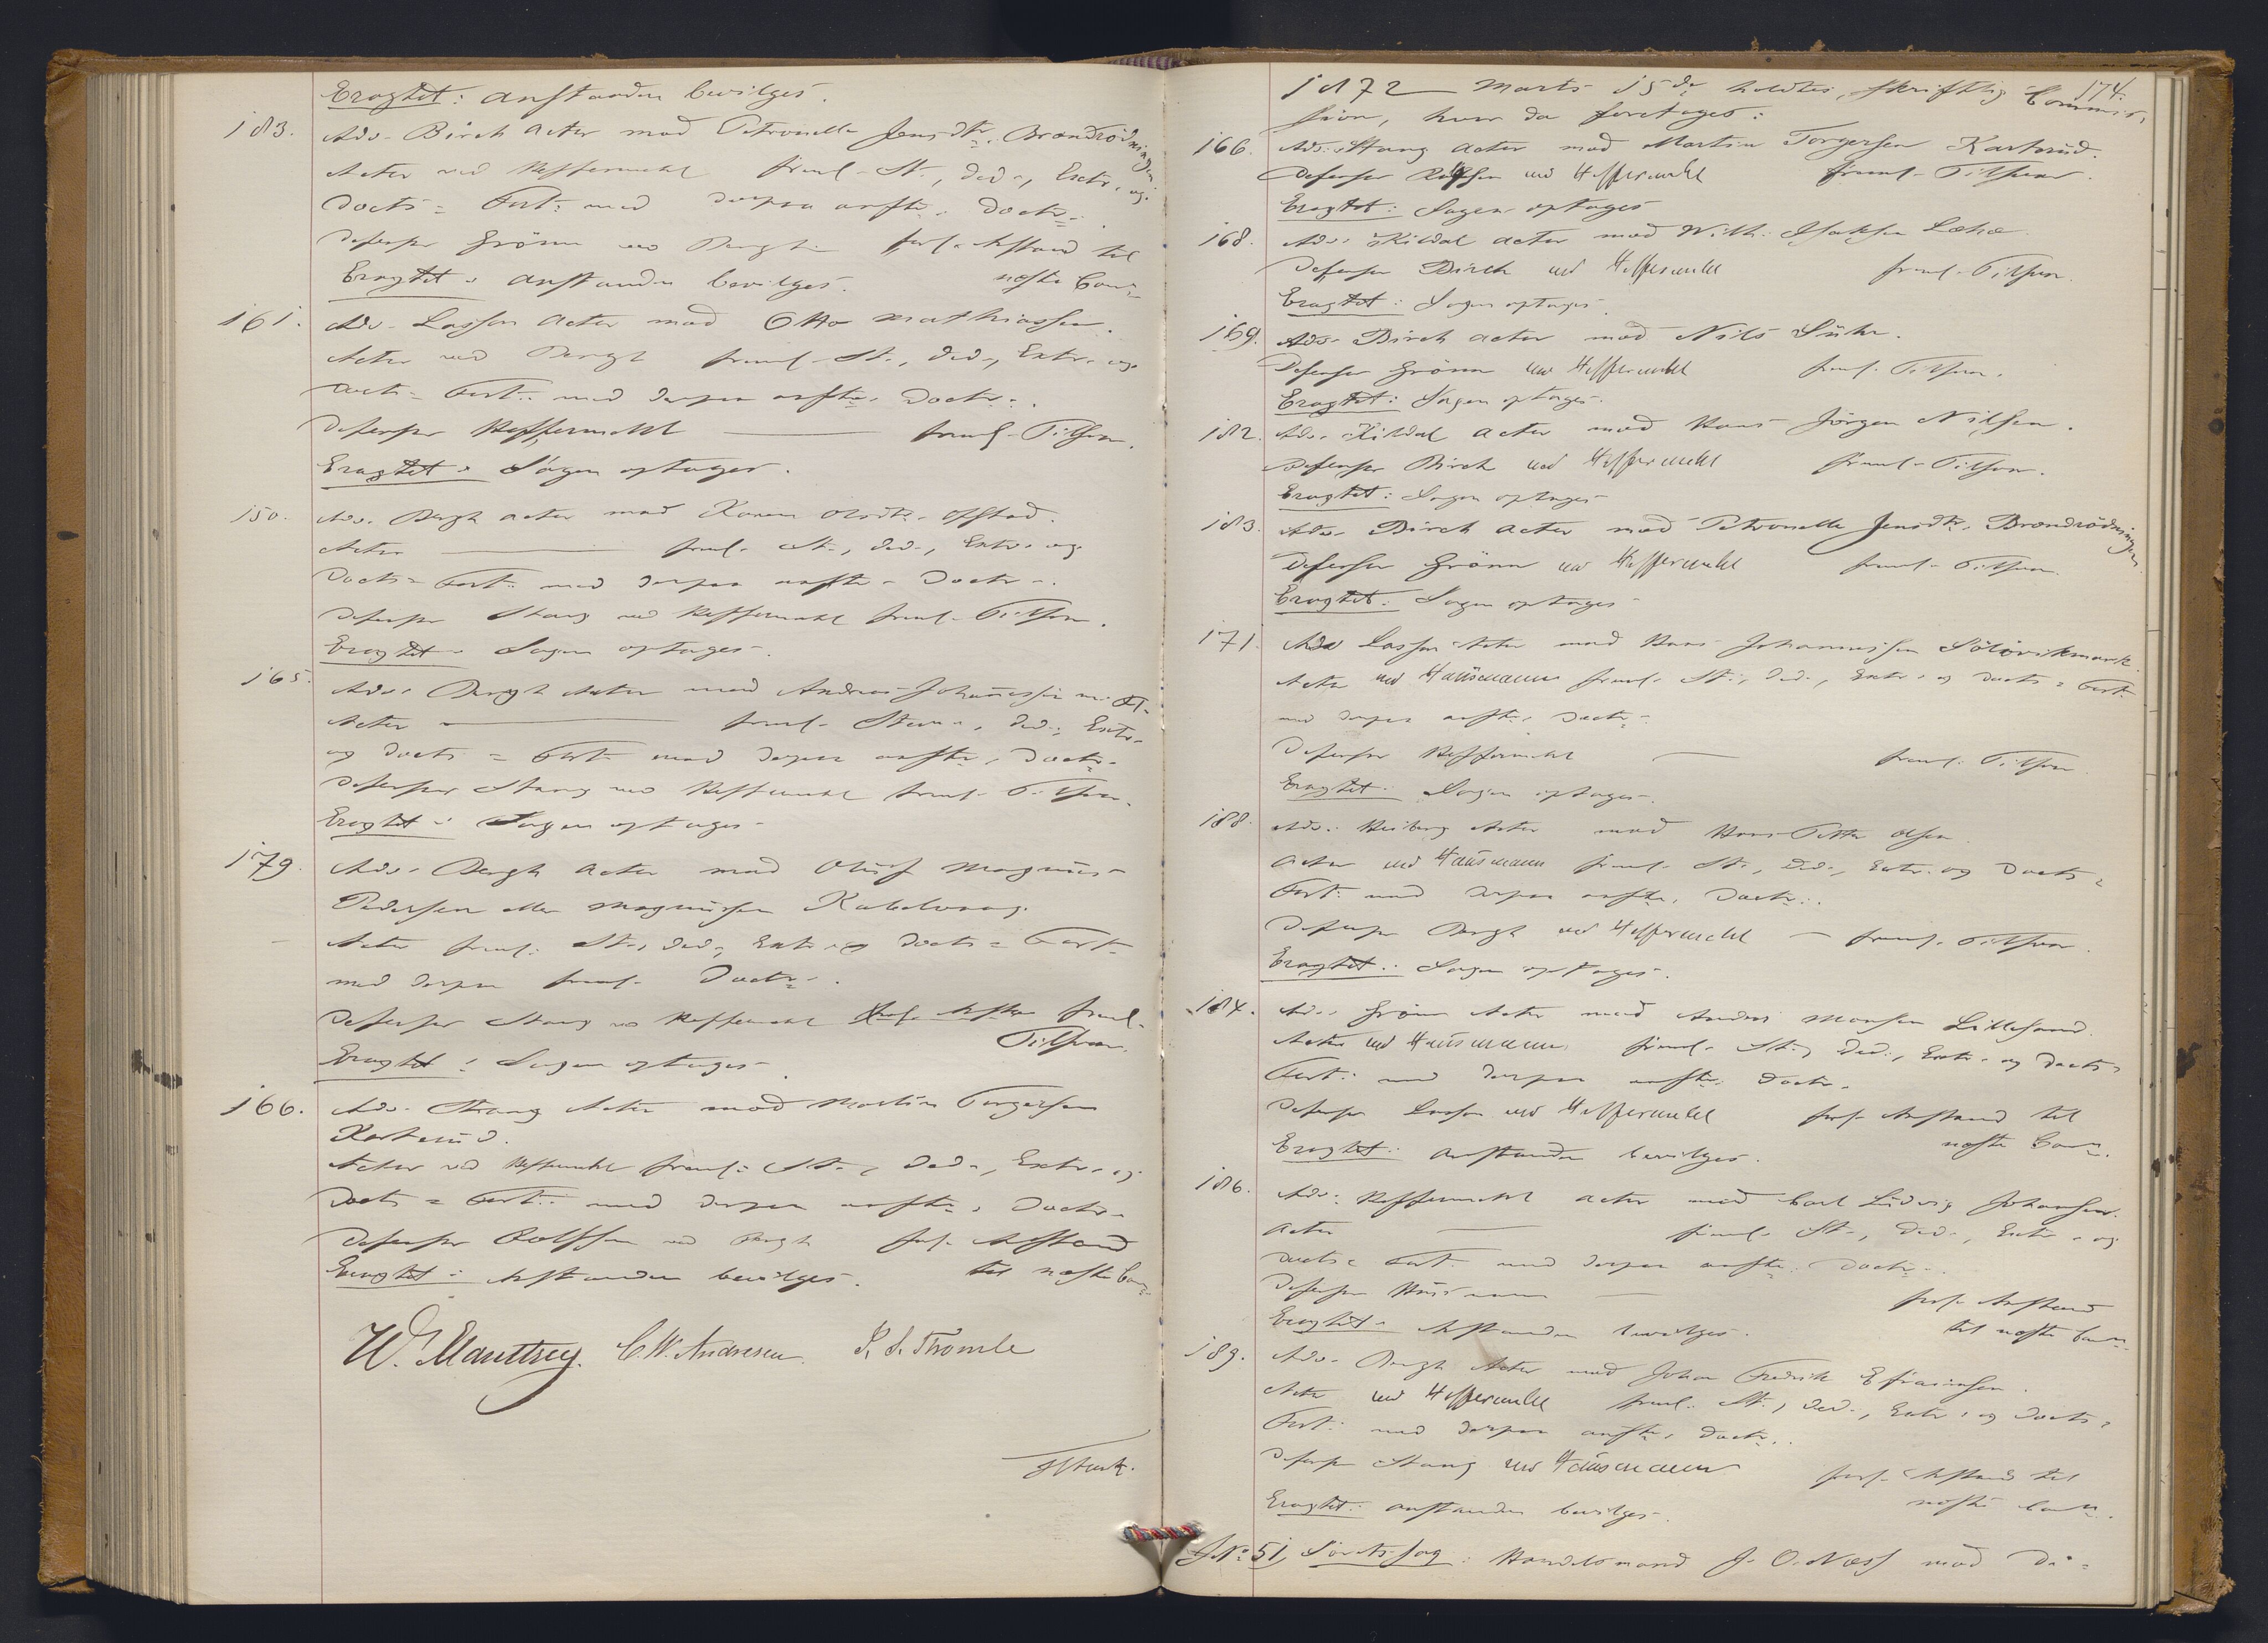 Eragtet: Anstanden bevilges.
183. Adv. Birch Actor mod Petronelle Jensdtr. Brandrödningen.
Actor ved Heffermehl freml. St., Ded., Extr. og
Docts = Fort: med derpaa anftr. Doctr.
Defensor Grönn ved Bergh forl. Anstand til
Eragtet: Anstanden bevilges. næste Com.
161. Adv. Lasson Actor mod Otto Mathiassen.
Actor ved Bergh freml. St., Ded., Extr. og
Docts = Fort: med derpaa anftr. Doctr.
Defensor Heffermehl freml. Tilsvar.
Eragtet: Sagen optages.
150. Adv. Bergh Actor mod Karen Olsdtr. Opstad.
Actor freml. St., Ded., Extr. og
Docts = Fort: med derpaa anftr. Doctr.
Defensor Stang ved Heffermehl freml. Tilsvar.
Eragtet: Sagen optages.
165. Adv. Bergh Actor mod Andreas Johannessen m. Fl.
Actor freml. Stevn., Ded., Extr.
og Docts = Fort: med derpaa anftr. Doctr.
Defensor Stang ved Heffermehl freml. Tilsvar.
Eragtet: Sagen optages.
179. Adv. Bergh Actor mod Oluf Magnus
Pedersen eller Magnussen Kabelvaag.
Actor freml. St., Ded., Extr. og Docts = Fort.
med derpaa freml. Doctr.
Defensor Stang ved Heffermehl freml.
Tilsvar.
Eragtet: Sagen optages.
166. Adv. Stang Actor mod Martin Torgersen
Karterud.
Actor ved Heffermehl freml. St., Ded., Extr. og
Docts = Fort: med derpaa anftr. Doctr.
Defensor Rolfsen ved Bergh forl. Anstand
Eragtet: Anstanden bevilges. til næste Com.
C. W. Andresen. P. S. Thomle
174.
1872 Marts 15de holdtes skriftlig Commis,
sion, hvor da foretoges:
166. Adv. Stang Actor mod Martin Torgersen Karterud.
Defensor Rolfsen ved Heffermehl freml. Tilsvar.
Eragtet: Sagen optages
168. Adv. Kildal Actor mod Wilh. Isaksen
Defensor Birch ved Heffermehl freml. Tilsvar.
Eragtet: Sagen optages.
169. Adv. Birch Actor mod Nils
Defensor Grönn ved Heffermehl freml. Tilsvar.
Eragtet: Sagen optages.
182. Adv. Kildal Actor mod Hans Jörgen Nilsen.
Defensor Birch ved Heffermehl freml. Tilsvar.
Eragtet: Sagen optages
183. Adv. Birch Actor mod Petronelle Jensdtr. Brandrödningen
Defensor Grönn ved Heffermehl freml. Tilsvar.
Eragtet: Sagen optages
171. Adv. Lasson Actor mod Hans Johannessen
Actor ved Hausmann freml. St., Ded., Extr. og Docts = Fort:
med derpaa anftr. Doctr.
Defensor Heffermehl freml. Tilsvar.
Eragtet: Sagen optages.
188. Adv. Heiberg Actor mod Hans Petter Olsen
Actor ved Hausmann freml. St., Ded., Extr. og Docts =
Fort: med derpaa anftr. Doctr.
Defensor Bergh ved Heffermehl freml. Tilsvar.
Eragtet: Sagen optages.
184. Adv. Grönn Actor mod Anders Monsen Lillesand.
Actor ved Hausmann freml. St., Ded., Extr. og Docts =
Fort: med derpaa anftr. Doctr.
Defensor Lasson ved Heffermehl forl. Anstand til
næste Com.
Eragtet: Anstanden bevilges.
186. Adv. Heffermehl Actor mod Carl Ludvig Johansen.
Actor freml. St., Ded., Extr. og
Docts = Fort: med derpaa anftr. Doctr.
Defensor Hausmann forl. Anstand
Eragtet: Anstanden bevilges. til næste Com.
189. Adv. Bergh Actor mod Johan Fredrik Efraimsen.
Actor ved Heffermehl freml. St., Ded., Extr. og Docts =
Fort: med derpaa anftr. Doctr.
Defensor Stang ved Hausmann forl. Anstand til
næste Com.
Eragtet: Anstanden bevilges.
J.No: 51, Handelsmand J. O. Næss mod Di=